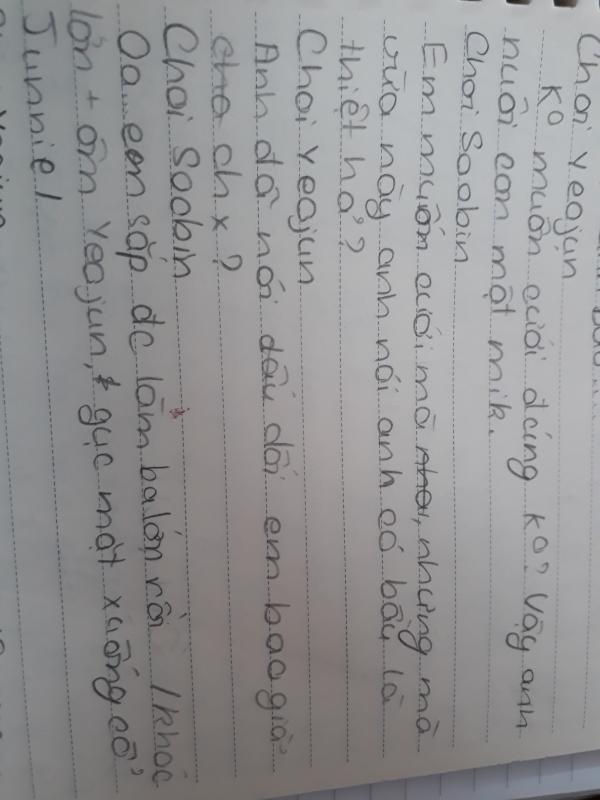 Choi Yeajun
K° muốn cưới đúng k°? Vậy anh
nuôi con một mik.
Choi Soobin
Em muốn cưới mà, nhưng mà
vừa nãy anh nói anh có bầu là
thiệt hả?
Choi Yeajun
Anh đã nói dối em bao giờ
cha chx?
Choi Soobin
Oa.. em sắp đc làm ba lớn rồi /khóc
lớn + ôm Yeajun, gục mặt xuống cổ
Junnie/